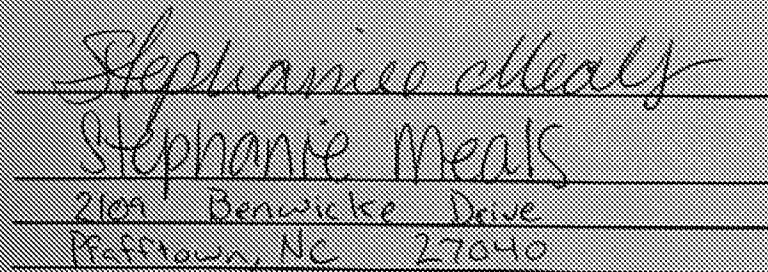 Stephanie Meals
Stephanie Meals
2109 Benwicke Drive
Pfafftown, NC 27040